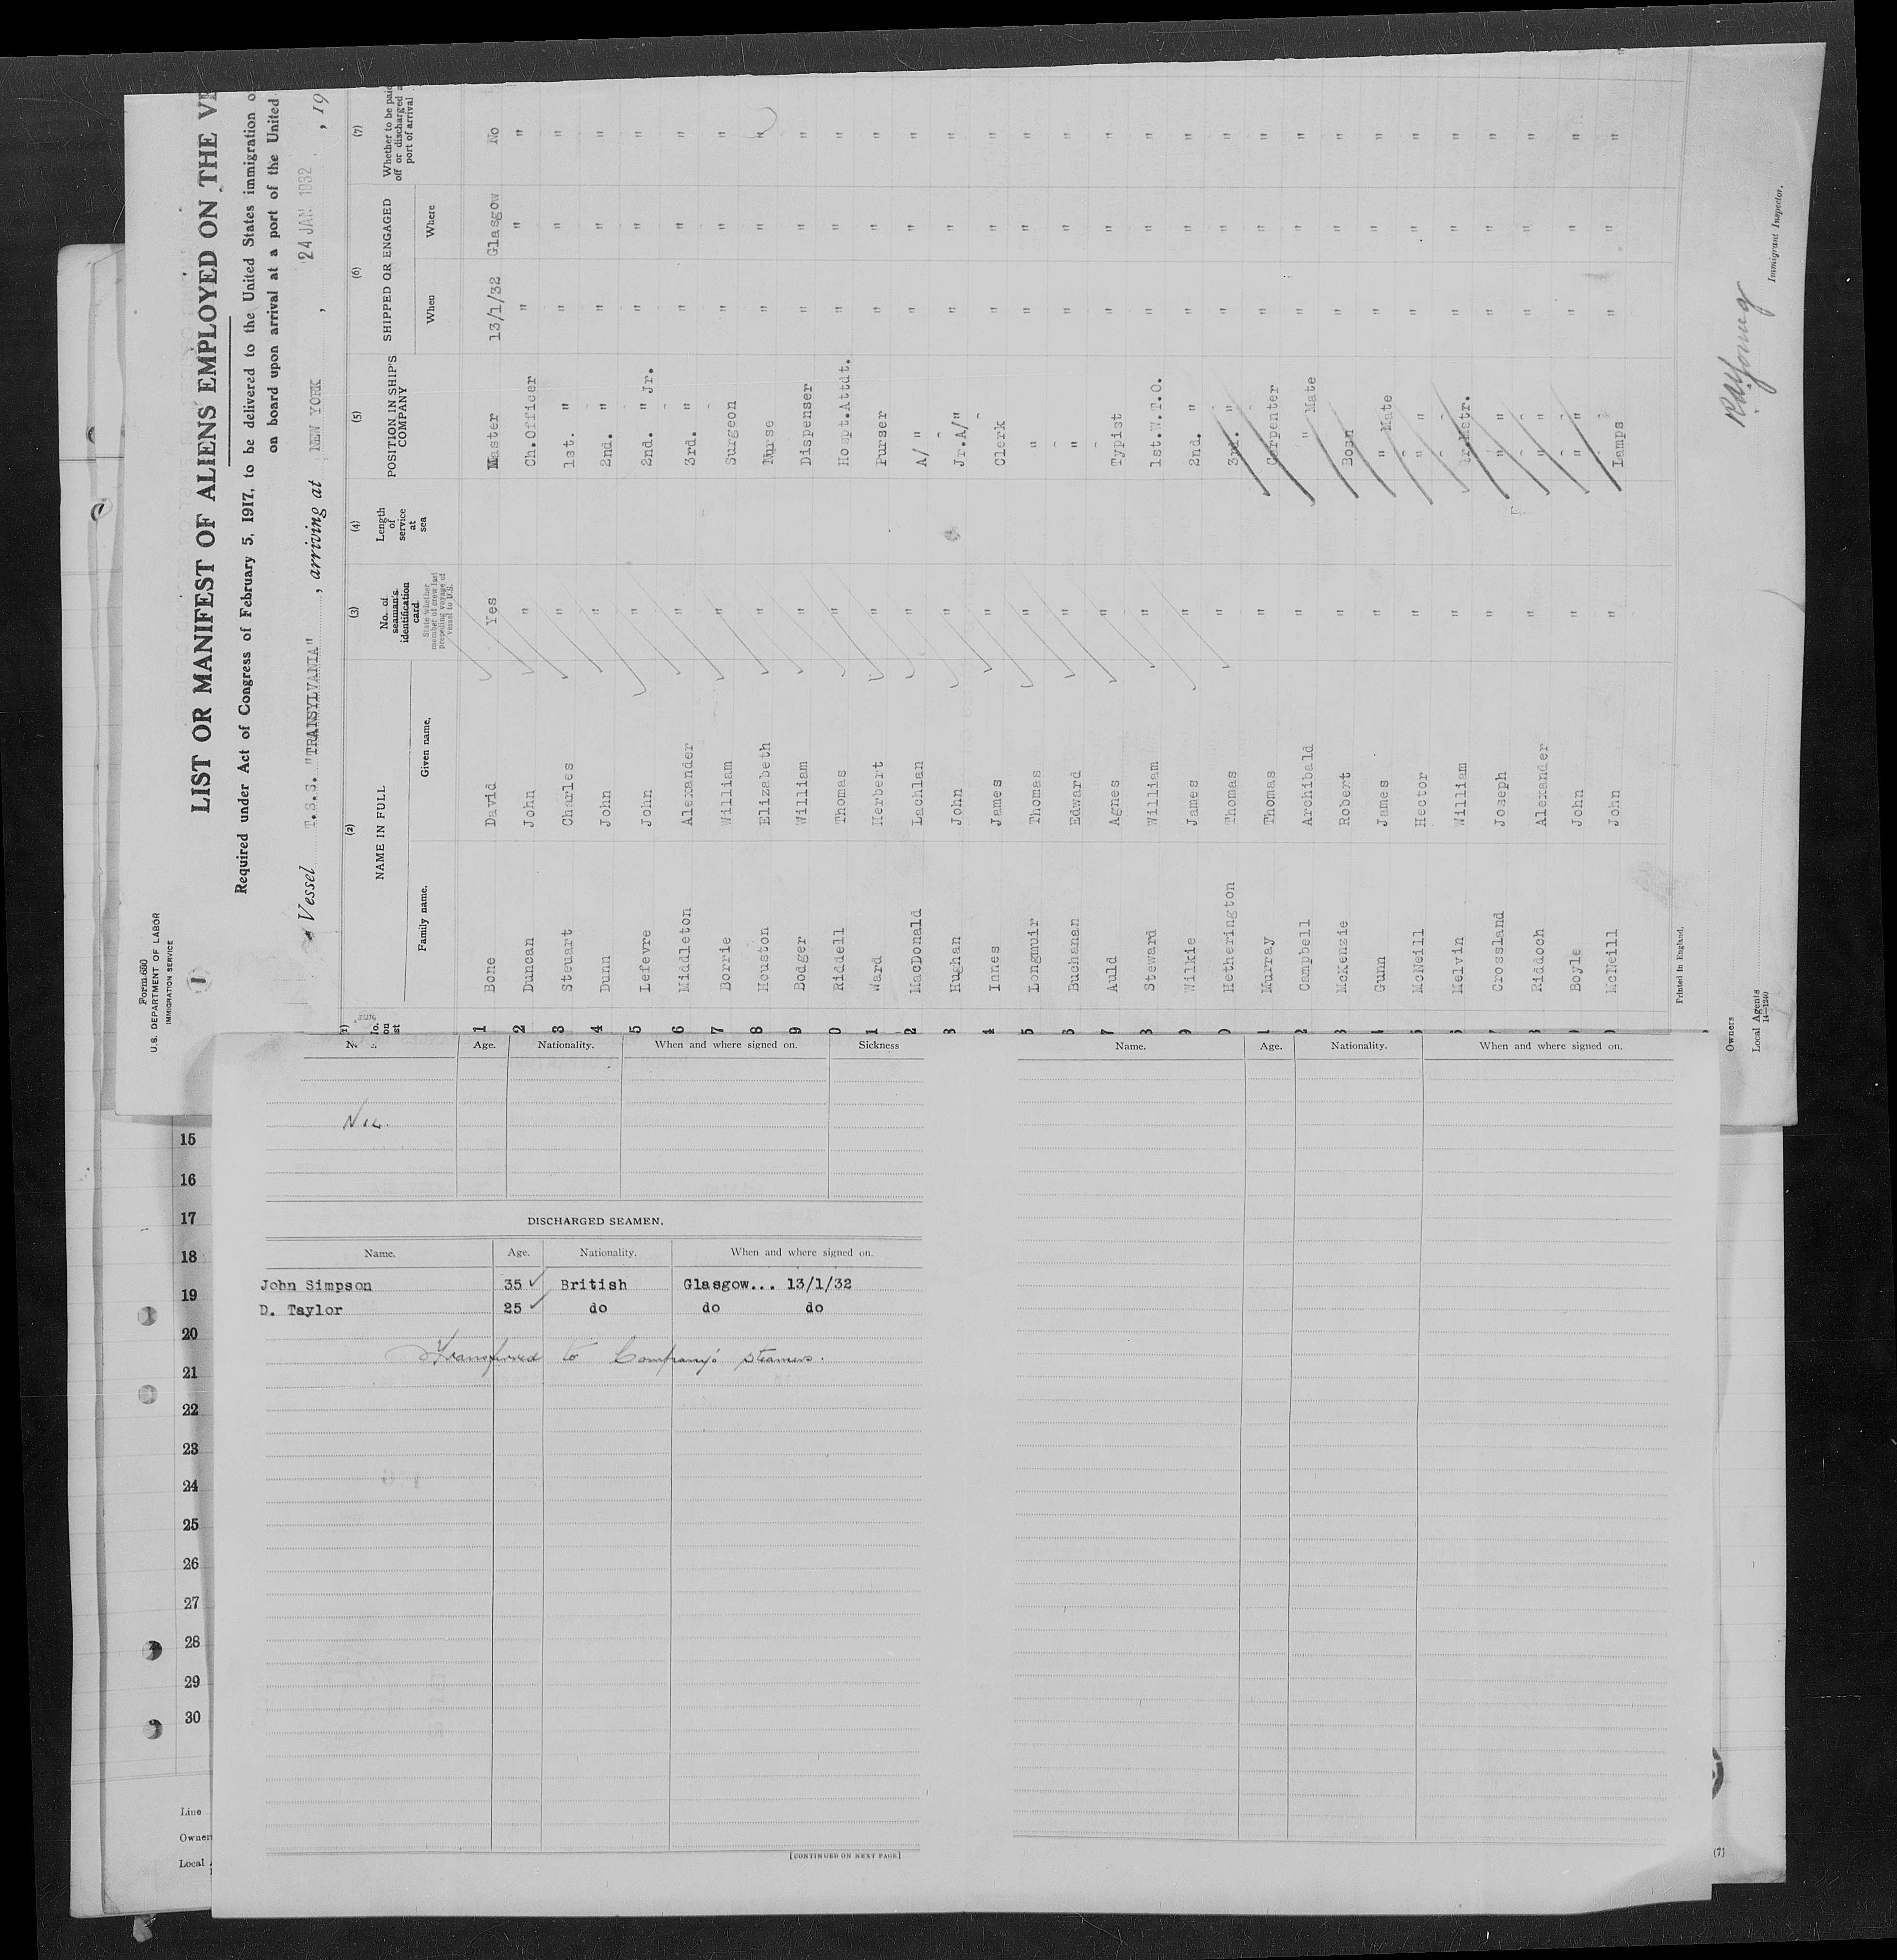 Form 680
U.S. DEPARTMENT OF LABOR
IMMIGRATION SERVICE
1
LIST OR MANIFEST OF ALIENS EMPLOYED ON THE
Required under Act of Congress of February 5, 1917, to be delivered to the United States immigration
on board upon arrival at a port of the United
Vessel T.S.S. "TRANSYLVANIA", arriving at NEW YORK, 24 JAN 1932, 19
(2) (3) (4) (5) (6) (7)
NAME IN FULL
Family name. Given name.
No. of seaman's identification card
State whether member of crew last preceding voyage of vessel to U.S.
Length of service at sea
POSITION IN SHIP'S COMPANY
SHIPPED OR ENGAGED
When Where
Whether to be paid off or discharged port of arrival
1 Bone David Yes Master 13/1/32 Glasgow No
2 Duncan John " Ch.Officer " " "
3 Steuart Charles " 1st. " " " "
4 Dunn John " 2nd. " " " "
5 Lefevre John " 2nd. " Jr. " " "
6 Middleton Alexander " 3rd. " " " "
7 Borrie William " Surgeon " " "
8 Houston Elizabeth " Nurse " " "
9 Bodger William " Dispenser " " "
0 Riddell Thomas " Hospt.Attdt. " " "
1 Ward Herbert " Purser " " "
2 MacDonald Lachlan " A/ " " " "
3 Hughan John " Jr.A/" " " "
4 Innes James " Clerk " " "
5 Longmuir Thomas " " " " "
6 Buchanan Edward " " " " "
7 Auld Agnes " Typist " " "
8 Steward William " 1st.W.T.O. " " "
9 Wilkie James " 2nd. " " " "
0 Hetherington Thomas " 3rd. " " " "
1 Murray Thomas " Carpenter " " "
2 Campbell Archibald " " Mate " " "
3 McKenzie Robert " Bosn " " "
4 Gunn James " " Mate " " "
5 McNeill Hector " " " " " "
6 Melvin William " " " "
7 Crossland Joseph " " " " " "
8 Riddoch Alexander " " " " " "
9 Boyle John " " " " " "
0 McNeill John " Lamps " " "
Printed in England.
Owners
Local Agents
14-1240
Immigrant Inspector.
Age. Nationality. When and where signed on. Sickness
Nil.
DISCHARGED SEAMEN.
Name. Age. Nationality. When and where signed on.
John Simpson 35 British Glasgow... 13/1/32
D. Taylor 25 do do do
Transferred to Company's steamers.
[CONTINUED ON NEXT PAGE]
Name. Age. Nationality. When and where signed on.
15
16
17
18
19
20
21
22
23
24
25
26
27
28
29
30
Line
Owner
Local
(7)